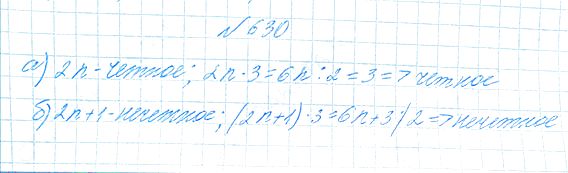 №630
а) 2n - четное; 2n·3=6n:2=3=> четное
б) 2n+1 - нечетное; (2n+1)·3=6n+3/2=> нечетное